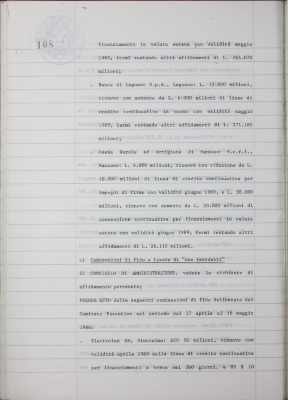 108
finanziamento in valuta estera con validità maggio
1989, fermi restando altri affidamenti di L. 265.070
milioni;
. Banca di Legnano S.p.A., Legnano: L. 12.000 milioni,
rinnovo con aumento da L. 6.000 milioni di linea di
credito continuativa in corso con validità maggio
1989, fermi restando altri affidamenti di L. 271.165
milioni;
. Cassa Rurale ed Artigiana di S.c.r.l.,
L. 4.000 milioni, rinnovo con riduzione da L.
10.000 milioni di linea di credito continuativa per
impegni di firma con validità giugno 1989, e L. 30.000
milioni, rinnovo con aumento da L. 20.000 milioni di
concessione continuativa per finanziamenti in valuta
estera con validità giugno 1989, fermi restando altri
affidamenti di L. 26.115 milioni.
c) Concessioni di fido a favore di "non residenti"
IL CONSIGLIO DI AMMINISTRAZIONE, vedute le richieste di
affidamento pervenute;
PRENDE ATTO delle seguenti concessioni di fido deliberate dal
Comitato Esecutivo nel periodo dal 27 aprile al 18 maggio
1988:
. Electrolux AB, Stoccolma: ECU 50 milioni, rinnovo con
validità aprile 1989 della linea di credito continuativa
per finanziamenti a breve max 360 giorni, e US $ 10